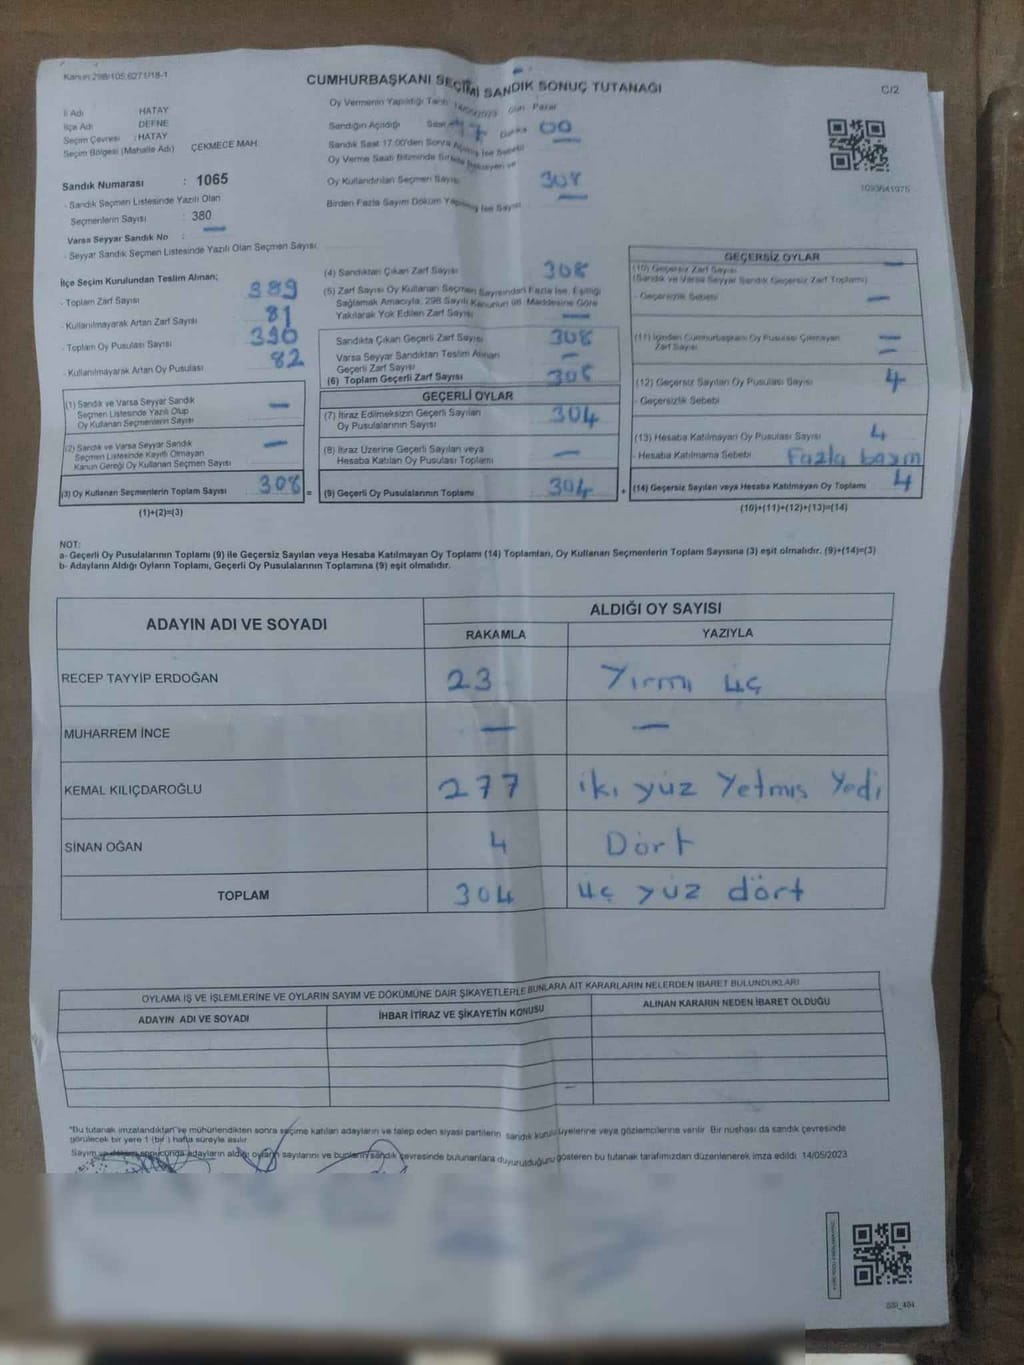 Kanun:298/105,6271/18-1
CUMHURBAŞKANI SEÇİMİ SANDIK SONUÇ TUTANAĞI
C/2
İl Adı HATAY
İlçe Adı DEFNE
Seçim Çevresi : HATAY
Seçim Bölgesi (Mahalle Adı) ÇEKMECE MAH.
Sandık Numarası : 1065
- Sandık Seçmen Listesinde Yazılı Olan
Seçmenlerin Sayısı : 380
Varsa Seyyar Sandık No :
- Seyyar Sandık Seçmen Listesinde Yazılı Olan Seçmen Sayısı
Oy Vermenin Yapıldığı Tarih 14/05/2023 Gün Pazar
Sandığın Açıldığı Saat 17 Dakika 00
Sandık Saat 17.00'den Sonra Açılmış İse Sebebi
Oy Verme Saati Bitiminde Sırada Bekleyen ve
Oy Kullandırılan Seçmen Sayısı 308
Birden Fazla Sayım Döküm Yapılmış İse Sayısı
1093641975
İlçe Seçim Kurulundan Teslim Alınan;
- Toplam Zarf Sayısı 389
- Kullanılmayarak Artan Zarf Sayısı 81
- Toplam Oy Pusulası Sayısı 390
- Kullanılmayarak Artan Oy Pusulası 82
(1) Sandık ve Varsa Seyyar Sandık
Seçmen Listesinde Yazılı Olup
Oy Kullanan Seçmenlerin Sayısı —
(2) Sandık ve Varsa Seyyar Sandık
Seçmen Listesinde Kayıtlı Olmayan
Kanun Gereği Oy Kullanan Seçmen Sayısı —
(3) Oy Kullanan Seçmenlerin Toplam Sayısı 308 =
(1)+(2)=(3)
(4) Sandıktan Çıkan Zarf Sayısı 308
(5) Zarf Sayısı Oy Kullanan Seçmen Sayısından Fazla İse, Eşitliği
Sağlamak Amacıyla, 298 Sayılı Kanunun 98. Maddesine Göre
Yakılarak Yok Edilen Zarf Sayısı —
Sandıkta Çıkan Geçerli Zarf Sayısı 308
Varsa Seyyar Sandıktan Teslim Alınan
Geçerli Zarf Sayısı —
(6) Toplam Geçerli Zarf Sayısı 308
GEÇERLİ OYLAR
(7) İtiraz Edilmeksizin Geçerli Sayılan
Oy Pusulalarının Sayısı 304
(8) İtiraz Üzerine Geçerli Sayılan veya
Hesaba Katılan Oy Pusulası Toplamı —
(9) Geçerli Oy Pusulalarının Toplamı 304 +
GEÇERSİZ OYLAR
(10) Geçersiz Zarf Sayısı —
(Sandık ve Varsa Seyyar Sandık Geçersiz Zarf Toplamı)
- Geçersizlik Sebebi —
(11) İçinden Cumhurbaşkanı Oy Pusulası Çıkmayan —
Zarf Sayısı —
(12) Geçersiz Sayılan Oy Pusulası Sayısı 4
- Geçersizlik Sebebi
(13) Hesaba Katılmayan Oy Pusulası Sayısı 4
- Hesaba Katılmama Sebebi Fazla basım
(14) Geçersiz Sayılan veya Hesaba Katılmayan Oy Toplamı 4
(10)+(11)+(12)+(13)=(14)
NOT:
a- Geçerli Oy Pusulalarının Toplamı (9) ile Geçersiz Sayılan veya Hesaba Katılmayan Oy Toplamı (14) Toplamları, Oy Kullanan Seçmenlerin Toplam Sayısına (3) eşit olmalıdır. (9)+(14)=(3)
b- Adayların Aldığı Oyların Toplamı, Geçerli Oy Pusulalarının Toplamına (9) eşit olmalıdır.
ADAYIN ADI VE SOYADI ALDIĞI OY SAYISI
RAKAMLA YAZIYLA
RECEP TAYYİP ERDOĞAN 23 Yirmi üç
MUHARREM İNCE — —
KEMAL KILIÇDAROĞLU 277 iki yüz Yetmis Yedi
SİNAN OĞAN 4 Dört
TOPLAM 304 üç yüz dört
OYLAMA İŞ VE İŞLEMLERİNE VE OYLARIN SAYIM VE DÖKÜMÜNE DAİR ŞİKAYETLERLE BUNLARA AİT KARARLARIN NELERDEN İBARET BULUNDUKLARI
ADAYIN ADI VE SOYADI İHBAR İTİRAZ VE ŞİKAYETİN KONUSU ALINAN KARARIN NEDEN İBARET OLDUĞU
"Bu tutanak imzalandıktan ve mühürlendikten sonra seçime katılan adayların ve talep eden siyasi partilerin sandık kurulu üyelerine veya gözlemcilerine verilir. Bir nüshası da sandık çevresinde
görülecek bir yere 1 (bir ) hafta süreyle asılır.
Sayım ve döküm sonucunda adayların aldığı oyların sayılarını ve bunların sandık çevresinde bulunanlara duyurulduğunu gösteren bu tutanak tarafımızdan düzenlenerek imza edildi. 14/05/2023